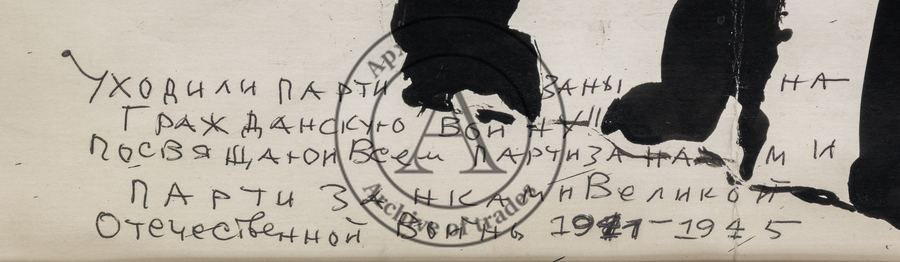 УХОДИЛИ ПАРТИЗАНЫ НА
ГРАЖДАНСКУЮ ВОЙНУ!!
ПОСВЯЩАЮ Всем ПАРТИЗАНАМ И
ПАРТИЗАНКАМ Великой
Отечественной Войны 1941-1945